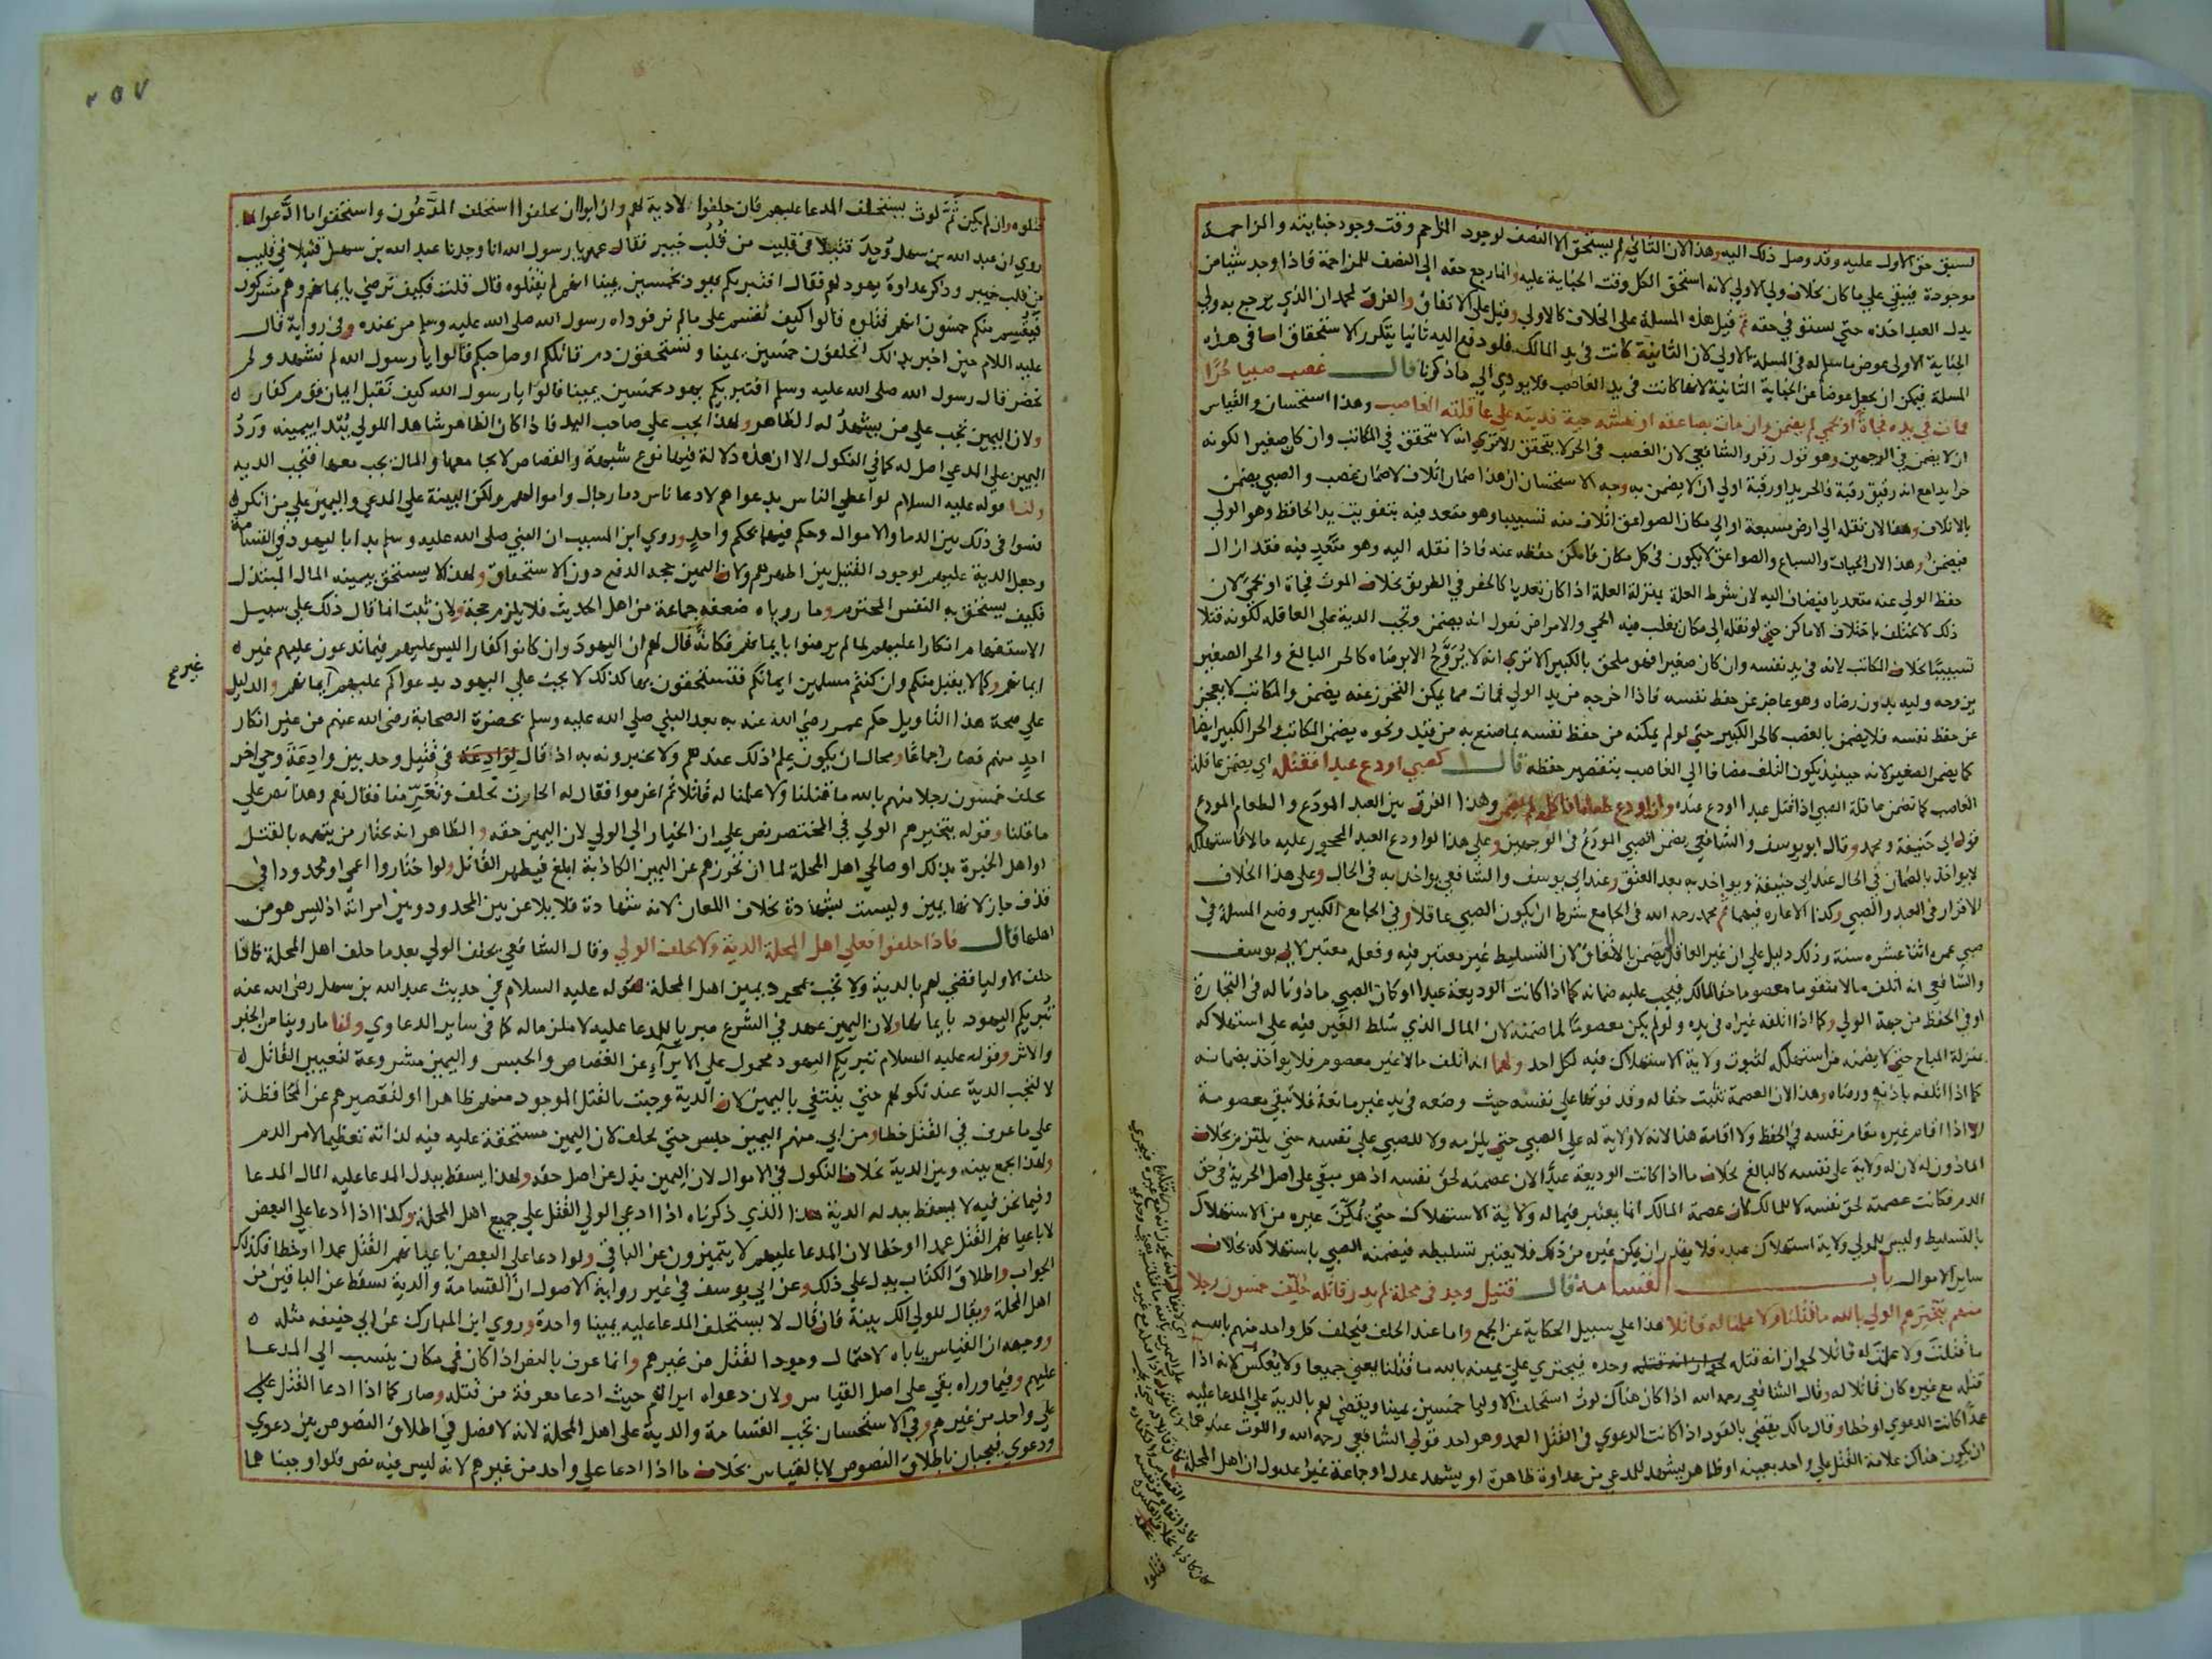 لسبق حق الاول عليه وقد وصل ذلك اليه وهذا لان الثاني لم يستحق الا النصف لوجود المزاحم وقت وجود جنايته والمزاحمة
موجودة فيبقي علي ما كان بخلاف ولي الاولي لانه استحق الكل وقت الجناية عليه وانما رجع حقه الي النصف للمزاحمة فاذا وجد شيا من
بدل العبد اخذه حتي يستوفي حقه ثم قيل هذه المسلة علي الخلاف كالاولي وقيل علي الاتفاق والفرق لمحمد ان الذي يرجع به ولي
الجناية الاولي عوض ما سلم له في المسلة الاولي لان الثانية كانت في يد المالك فلو دفع اليه ثانيا يتكرر الاستحقاق اما في هذه
المسلة فيمكن ان يجعل عوضا عن الجناية الثانية لانها كانت في يد الغاصب فلا يودي الي ما ذكرنا قال غصب صبيا حرا
فمات في يده فجاة او بحمي لم يضمن وان مات بصاعقة او نهشة حية فديته علي عاقلة الغاصب وهذا استحسان والقياس
ان لا يضمن في الوجهين وهو قول زفر والشافعي لان الغصب في الحر لا يتحقق الا تري انه لا يتحقق في المكاتب وان كان صغيرا لكونه
حرا يدا مع انه رقيق رقبة فالحر يدا ورقبة اولي ان لا يضمن به وجه الاستحسان ان هذا ضمان اتلاف لا ضمان غصب والصبي يضمن
بالاتلاف وهذا لان نقله الي ارض مسبعة او الي مكان الصواعق اتلاف منه تسبيبا وهو متعد فيه بتفويت يد الحافظ وهو الولي
فيضمن وهذا لان الحيات والسباع والصواعق لا يكون في كل مكان فامكن حفظه عنه فاذا نقله اليه وهو متعد فيه فقد ازال
حفظ الولي عنه متعديا فيضاف اليه لان شرط العلة بمنزلة العلة اذا كان تعديا كالحفر في الطريق بخلاف الموت فجاة او بحمي لان
ذلك لا يختلف باختلاف الاماكن حتي لو نقله الي مكان يغلب فيه الحمي والامراض نقول انه يضمن وتجب الدية علي العاقلة لكونه قتلا
تسبيبا بخلاف المكاتب لانه في يد نفسه وان كان صغيرا فهو ملحق بالكبير الا تري انه لا يزوج الا برضاه كالحر البالغ والحر الصغير
يزوجه وليه بدون رضاه وهو عاجز عن حفظ نفسه فاذا اخرجه من يد الولي فمات مما يمكن التحرز عنه يضمن والمكاتب لا يعجز
عن حفظ نفسه فلا يضمن بالغصب كالحر الكبير حتي لو لم يمكنه من حفظ نفسه بما صنع به من قيد ونحوه يضمن المكاتب والحر الكبير ايضا
كما يضمن الصغير لانه حينيذ يكون التلف مضافا الي الغاصب بتقصير حفظه قال كصبي اودع عبدا فقتله اي يضمن عاقلة
الغاصب كما تضمن عاقلة الصبي اذا قتل عبدا اودع عنده وان اودع طعاما فاكله لم يضمن وهذا الفرق بين العبد المودع والطعام المودع
قول ابي حنيفة ومحمد وقال ابو يوسف والشافعي يضمن الصبي المودع في الوجهين وعلي هذا لو اودع العبد المحجور عليه مالا فاستهلكه
لا يواخذ بالضمان في الحال عند ابي حنيفة ويواخذ به بعد العتق وعند ابي يوسف والشافعي يواخذ به في الحال وعلي هذا الخلاف
الاقراض في العبد والصبي وكذا الاعارة فيهما ثم محمد رحمه الله في الجامع شرط ان يكون الصبي عاقلا وفي الجامع الكبير وضع المسلة في
صبي عمره اثنا عشره سنة وذلك دليل علي ان غير العاقل يضمن بالاتفاق لان التسليط غير معتبر فيه وفعله معتبر لابي يوسف
والشافعي انه اتلف مالا متقوما معصوما حقا لمالكه فيجب عليه ضمانه كما اذا كانت الوديعة عبدا او كان الصبي ماذونا له في التجارة
او في الحفظ من جهة الولي وكما اذا اتلفه غيره في يده ولو لم يكن معصوما لما ضمنه لان المال الذي سلط الغير فيه علي استهلاكه
بمنزلة المباح حتي لا يضمنه من استهلكه لثبوت ولاية الاستهلاك فيه لكل احد ولهما انه اتلف مالا غير معصوم فلا يواخذ بضمانه
كما اذا اتلفه باذنه ورضاه وهذا لان العصمة تثبت حقا له وقد فوتها علي نفسه حيث وضعه في يد غير مانعة فلا تبقي معصومة
الا اذا اقام غيره مقام نفسه في الحفظ ولا اقامة هنا لانه لا ولاية له علي الصبي حتي يلزمه ولا للصبي علي نفسه حتي يلتزم بخلاف
الماذون له لان له ولاية علي نفسه كالبالغ بخلاف ما اذا كانت الوديعة عبدا لان عصمته لحق نفسه اذ هو مبقي علي اصل الحرية في حق
الدم فكانت عصمته لحق نفسه لا للمالك لان عصمة المالك انما يعتبر فيما له ولاية الاستهلاك حتي يمكن غيره من الاستهلاك
بالتسليط وليس للمولي ولاية استهلاك عبده فلا يقدر ان يمكن غيره من ذلك فلا يعتبر تسليطه فيضمنه الصبي باستهلاكه بخلاف
ساير الاموال باب القسامة قال قتيل وجد في محلة لم يدر قاتله حلف خمسون رجلا
منهم يتخيرهم الولي بالله ما قتلناه ولا علمنا له قاتلا هذا علي سبيل الحكاية عن الجمع واما عند الحلف فيحلف كل واحد منهم بالله
ما قتلت ولا علمت له قاتلا لجواز انه قتله وحده فيجتري علي يمينه بالله ما قتلنا يعني جميعا ولا يعكس لانه اذا
قتله مع غيره كان قاتلا له وقال الشافعي رحمه الله اذا كان هناك لوث استحلف الاوليا خمسين يمينا ويقضي لهم بالدية علي المدعا عليه
عمدا كانت الدعوي او خطا وقال مالك يقضي بالقود اذا كانت الدعوي في القتل العمد وهو احد قولي الشافعي رحمه الله واللوث عندهما
ان يكون هناك علامة القتل علي واحد بعينه او ظاهر يشهد للمدعي من عداوة ظاهرة او يشهد عدل او جماعة غير عدول ان اهل المحلة
٢٥٧
قتلوه وان لم يكن ثم لوث يستحلف المدعا عليهم فان حلفوا لا دية لهم وان ابوا ان يحلفوا استحلف المدعون واستحقوا ما ادعوا لما
روي ان عبد الله بن سهل وجد قتيلا في قليب من قلب خيبر فقال عمه يا رسول الله انا وجدنا عبد الله بن سهل قتيلا في قليب
من قلب خيبر وذكر عداوة يهود لهم فقال افتبريكم يهود بخمسين يمينا انهم لم يقتلوه قال قلت فكيف نرضي بايمانهم وهم مشركون
فيقسم منكم خمسون انهم قتلوه قالوا كيف نقسم علي ما لم نر فوداه رسول الله صلي الله عليه وسلم من عنده وفي رواية قال
عليه السلام حين اخبر بذلك اتحلفون خمسين يمينا وتستحقون دم قاتلكم او صاحبكم قالوا يا رسول الله لم نشهد ولم
نحضر قال رسول الله صلي الله عليه وسلم افتبريكم يهود بخمسين يمينا قالوا يا رسول الله كيف نقبل ايمان قوم كفار
ولان اليمين تجب علي من يشهد له الظاهر ولهذا يجب علي صاحب اليد فاذا كان الظاهر شاهدا للولي يبتدا بيمينه ورد
اليمين علي المدعي اصل له كما في النكول الا ان هذه دلالة فيها نوع شبهة والقصاص لا يجامعها والمال يجب معها فتجب الدية
ولنا قوله عليه السلام لو اعطي الناس بدعواهم لادعا ناس دما رجال واموالهم ولكن البينة علي المدعي واليمين علي من انكر
فسوا في ذلك بين الدما والاموال وحكم فيهما بحكم واحد وروي ابن المسيب ان النبي صلي الله عليه وسلم بدا باليهود في القسامة
وجعل الدية عليهم لوجود القتيل بين اظهرهم ولان اليمين حجة للدفع دون الاستحقاق ولهذا لا يستحق بيمينه المال المبتذل
فكيف يستحق به النفس المحترم وما روياه ضعفه جماعة من اهل الحديث فلا يلزم حجة ولان ثبت انما قال ذلك علي سبيل
الاستفهام انكارا عليهم لما لم يرضوا بايمانهم فكانه قال لهم ان اليهود وان كانوا كفارا ليس عليهم فيما تدعون عليهم غير
ايمانهم وكما لا يقبل منكم وان كنتم مسلمين ايمانكم فتستحقون بها كذلك لا يجب علي اليهود بدعواكم عليهم غير ايمانهم والدليل
علي صحة هذا التاويل حكم عمر رضي الله عنه به بعد النبي صلي الله عليه وسلم بحضرة الصحابة رضي الله عنهم من غير انكار
احد منهم فصار اجماعا ومحال ان يكون يعلم ذلك عندهم ولا يخبرونه به اذ قال لوادعة في قتيل وجد بين وادعة وحي اخر
يحلف خمسون رجلا منهم بالله ما قتلنا ولا علمنا له قاتلا ثم اغرموا فقال له الحارث نحلف وتغرمنا فقال نعم وهذا نص علي
ما قلنا وقوله يتخيرهم الولي في المختصر نص علي ان الخيار الي الولي لان اليمين حقه والظاهر انه يختار من يتهمه بالقتل
او اهل الخبرة بذلك او صالحي اهل المحلة لما ان تحرزهم عن اليمين الكاذبة ابلغ فيظهر القاتل ولو اختاروا اعمي او محدودا في
قذف جاز لانها يمين وليست بشهادة بخلاف اللعان لانه شهادة فلا يلاعن بين المحدود وبين امراته اذ ليس هو من
اهلها قال فاذا حلفوا فعلي اهل المحلة الدية ولا يحلف الولي وقال الشافعي يحلف الولي بعد ما حلف اهل المحلة فاذا
حلف الاوليا قضي لهم بالدية ولا تجب بمجرد يمين اهل المحلة لقوله عليه السلام في حديث عبد الله بن سهل رضي الله عنه
تبريكم اليهود بايمانها ولان اليمين عهد في الشرع مبريا للمدعا عليه لا ملزما له كما في ساير الدعاوي ولنا ما روينا من الخبر
والاثر وقوله عليه السلام تبريكم اليهود محمول علي الابراء عن القصاص والحبس واليمين مشروعة لتعيين القاتل
لا لتجب الدية عند نكولهم حتي ينتفي باليمين لان الدية وجبت بالقتل الموجود منهم ظاهرا او لتقصيرهم عن المحافظة
علي ما عرف في القتل خطا ومن ابي منهم اليمين حبس حتي يحلف لان اليمين مستحقة عليه فيه لذاته تعظيما لامر الدم
ولهذا يجمع بينه وبين الدية بخلاف النكول في الاموال لان اليمين بدل عن اصل حقه ولهذا يسقط ببدل المدعا عليه المال المدعا
وفيما نحن فيه لا يسقط ببذله الدية هذا الذي ذكرناه اذا ادعي الولي القتل علي جميع اهل المحلة وكذا اذا ادعا علي البعض
لا باعيانهم القتل عمدا او خطا لان المدعا عليهم لا يتميزون عن الباقي ولو ادعا علي البعض باعيانهم القتل عمدا او خطا فكذلك
الجواب واطلاق الكتاب يدل علي ذلك وعن ابي يوسف في غير رواية الاصول ان القسامة والدية تسقط عن الباقين من
اهل المحلة ويقال للولي الك بينة فان قال لا يستحلف المدعا عليه يمينا واحدة وروي ابن المبارك عن ابي حنيفة مثله
ووجهه ان القياس ياباه لاحتمال وجود القتل من غيرهم وانما عرف بالنص اذا كان في مكان ينسب الي المدعا
عليهم وفيما وراه بقي علي اصل القياس ولان دعواه ابرا لهم حيث ادعا معرفة من قتله وصار كما اذا ادعا القتل علي
علي واحد من غيرهم وفي الاستحسان تجب القسامة والدية علي اهل المحلة لانه لا فصل في اطلاق النصوص بين دعوي
ودعوي فيجبان باطلاق النصوص لا بالقياس بخلاف ما اذا ادعا علي واحد من غيرهم لانه ليس فيه نص فلو اوجبناهما
غير صح